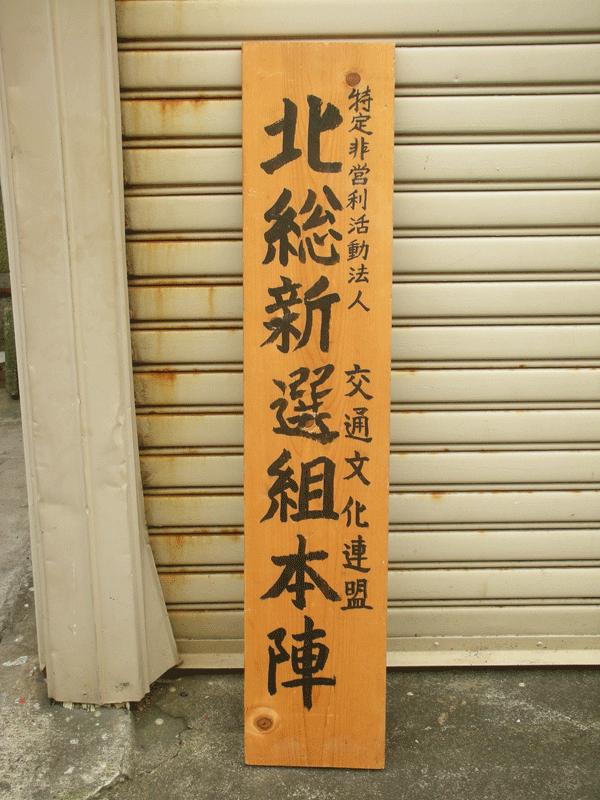 特定非営利活動法人 交通文化連盟
北総新選組本陣